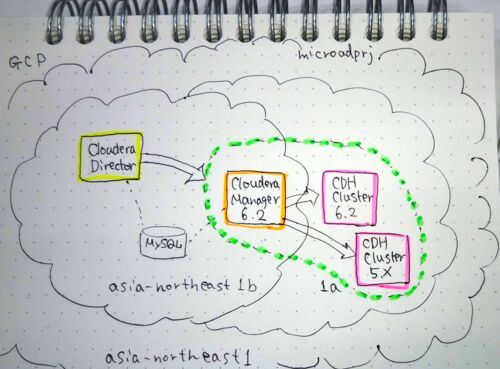 GCP
microadprj
Cloudera
Director
Cloudera
Manager
6.2
CDH
Cluster
6.2
MySQL
CDH
Cluster
5.X
asia-northeast1b
1a
asia-northeast1